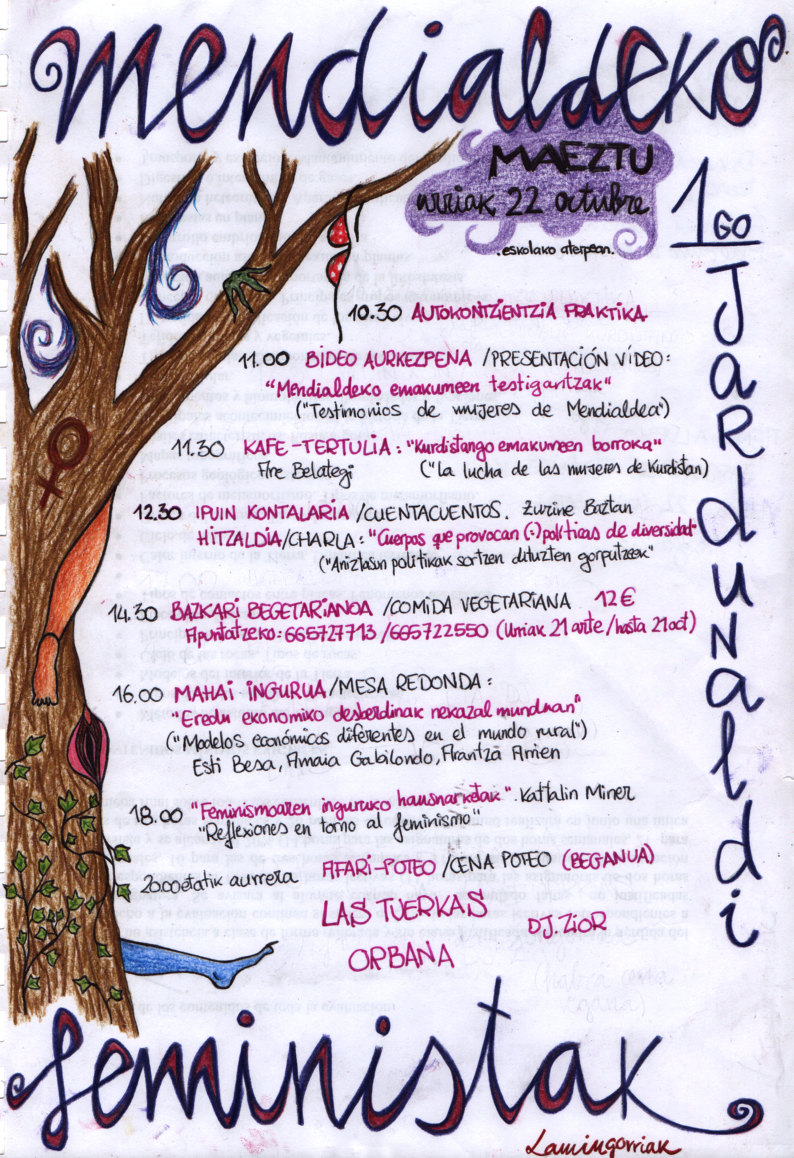 mendialdeko
MAEZTU
urriak 22 octubre
.eskolako aterpean.
1GO
JARDUNALDI
10.30 AUTOKONTZIENTZIA PRAKTIKA.
11.00 BIDEO AURKEZPENA /PRESENTACIÓN VIDEO:
"Mendialdeko emakumeen testigantzak"
("Testimonios de mujeres de Mendialdea")
11.30 KAFE-TERTULIA: "Kurdistango emakumeen borroka"
Ane Belategi ("La lucha de las mujeres de Kurdistan)
12.30 IPUIN KONTALARIA /CUENTACUENTOS. Zuriñe Baztan
HITZALDIA/CHARLA: "Cuerpos que provocan (·)políticas de diversidad"
("Aniztasun politikak sortzen dituzten gorputzek"
14.30 BAZKARI BEGETARIANOA /COMIDA VEGETARIANA 12€
Apuntatzeko: 665727713 /665722550 (Urriak 21 arte/hasta 21 oct)
16.00 MAHAI INGURUA/MESA REDONDA:
"Eredu ekonomiko desberdinak nekazal munduan"
("Modelos económicos diferentes en el mundo rural")
Esti Besa, Amaia Gabilondo, Arantza Arrien
18.00 "Feminismoaren inguruko hausnarketak". Kattalin Miner
"Reflexiones en torno al feminismo
20:00etatik aurrera AFARI POTEO /CENA POTEO (BEGANUA)
LAS TUERKAS
DJ. ZIOR
ORBANA
feministak
Lamingorriak